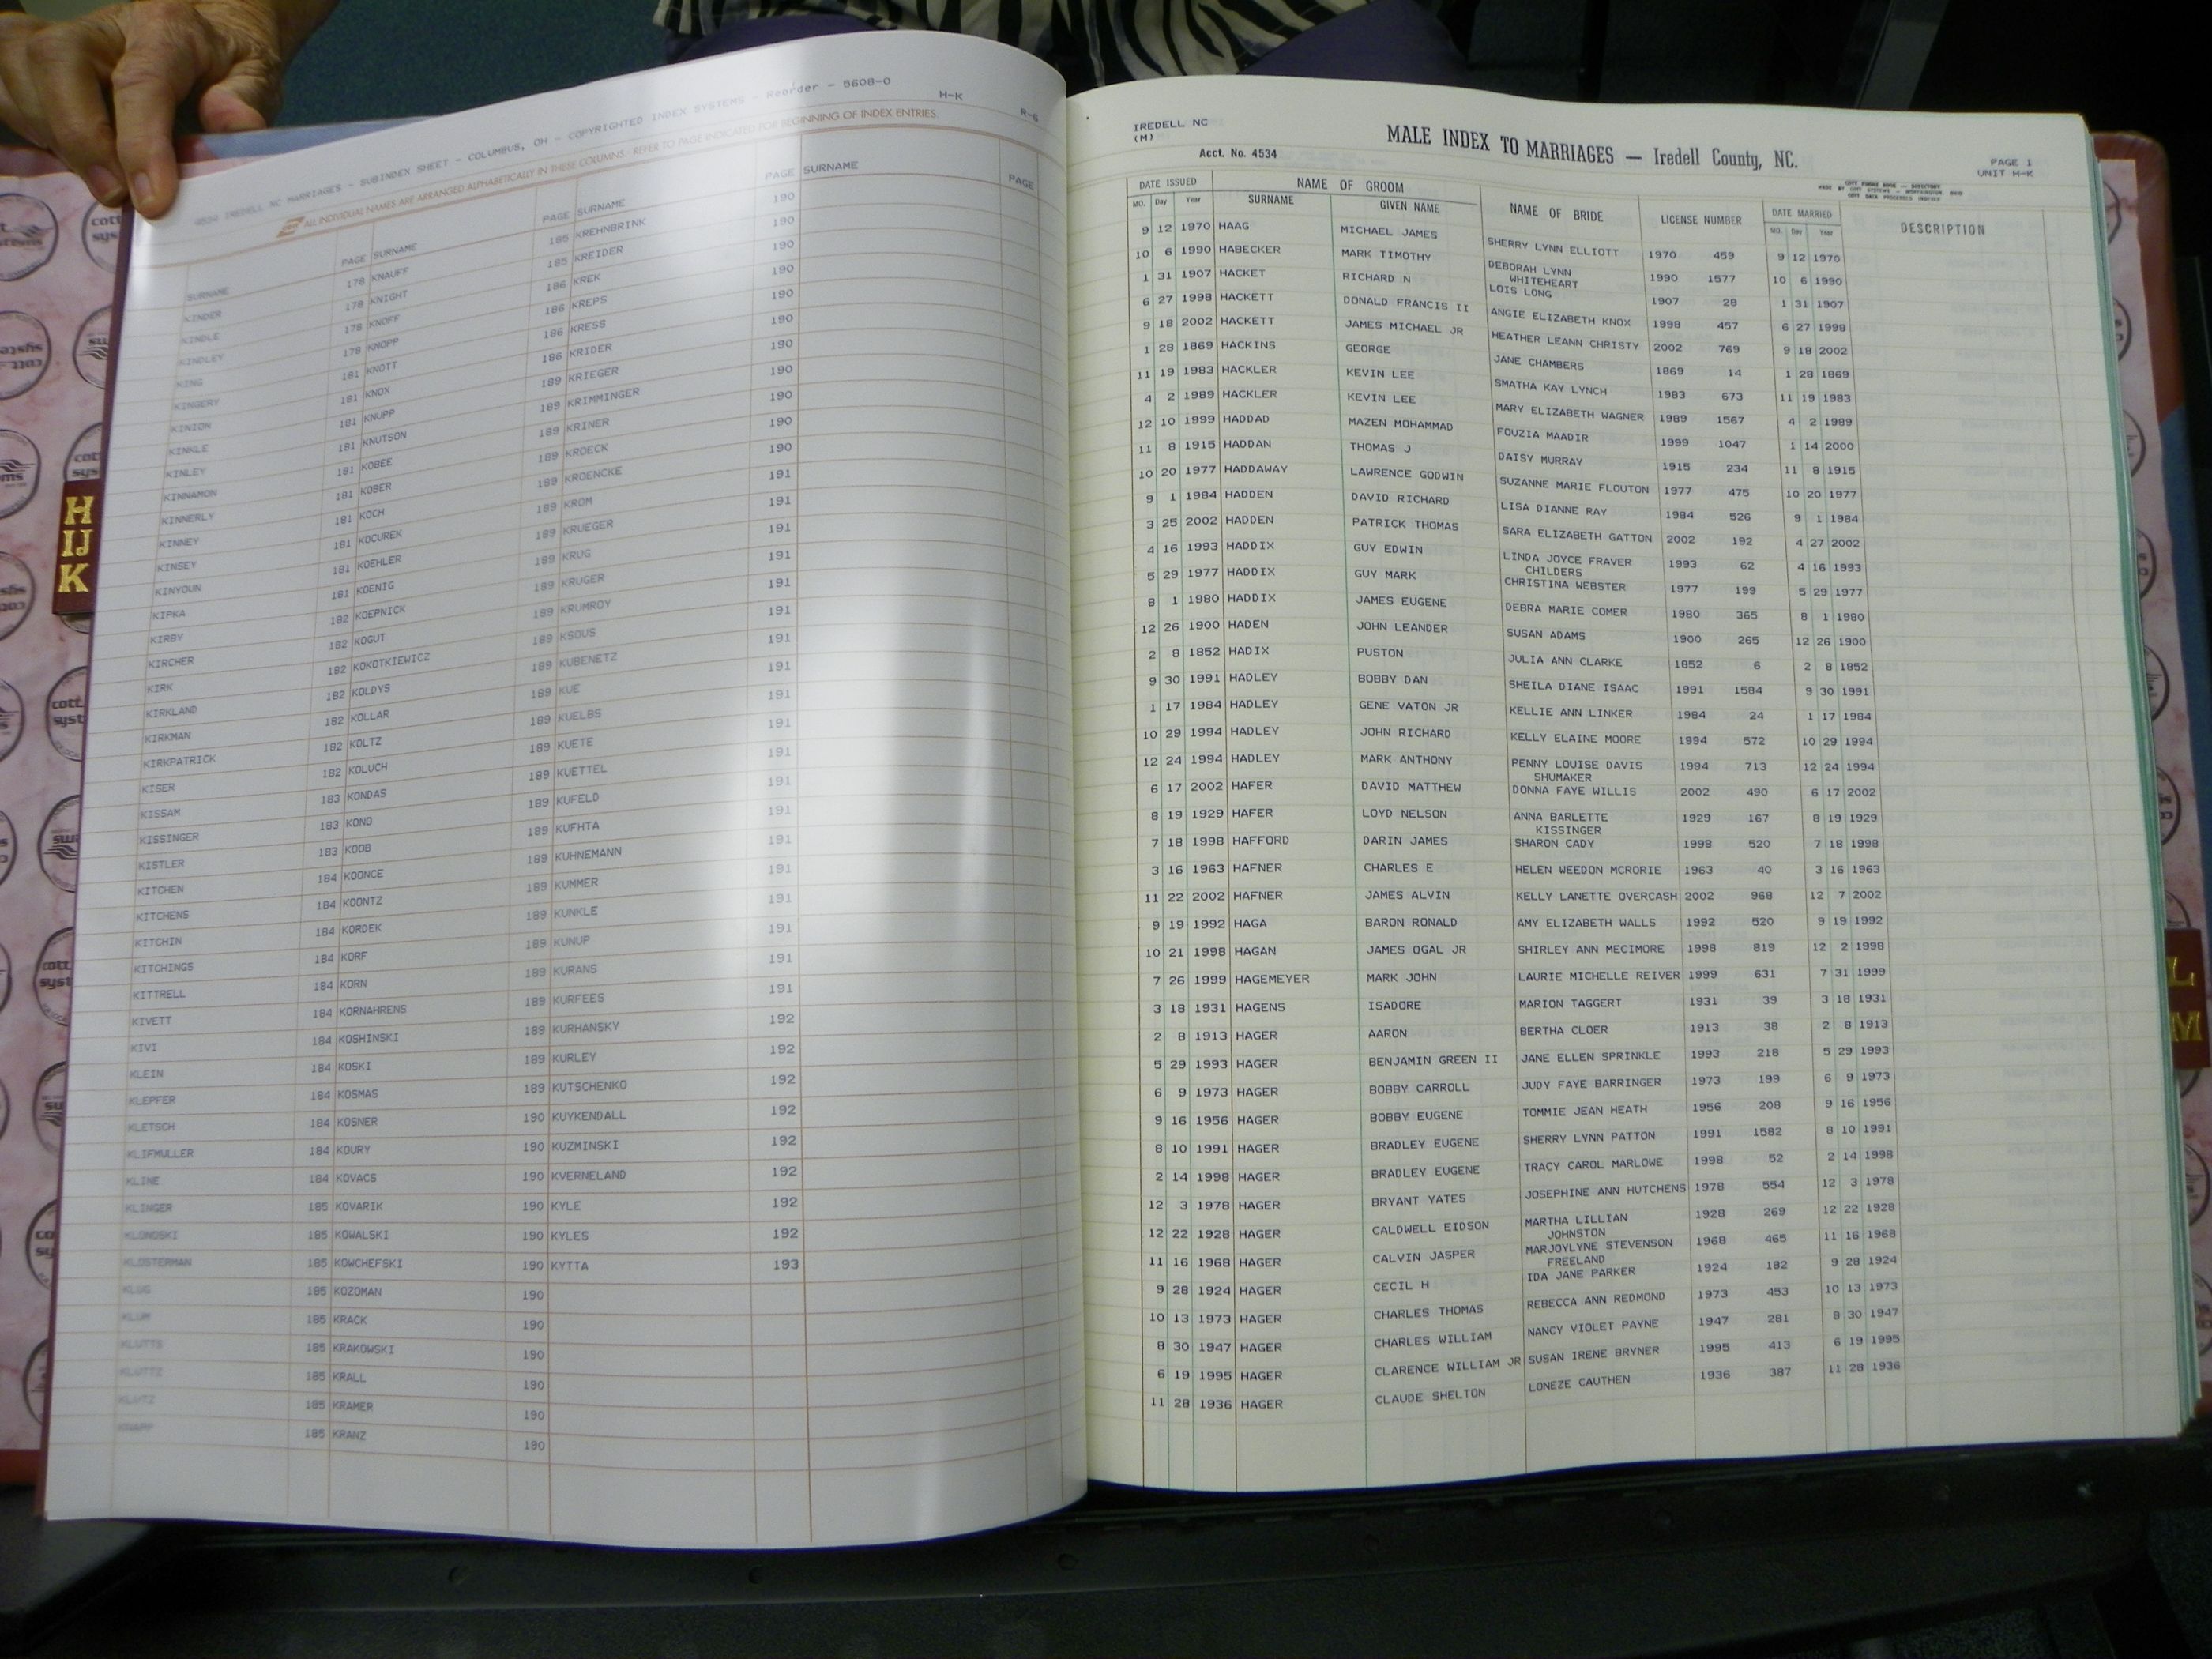 4534 IREDELL NC MARRIAGES - SUBINDEX SHEET - COLUMBUS, OH - COPYRIGHTED INDEX SYSTEMS - Reorder - 5608-0 H-K R-6
ALL INDIVIDUAL NAMES ARE ARRANGED ALPHABETICALLY IN THESE COLUMNS. REFER TO PAGE INDICATED FOR BEGINNING OF INDEX ENTRIES.
SURNAME PAGE
KINDER 178
KINDLE 178
KINDLEY 178
KING 178
KINGERY 181
KINION 181
KINKLE 181
KINLEY 181
KINNAMON 181
KINNERLY 181
KINNEY 181
KINSEY 181
KINYOUN 181
KIPKA 181
KIRBY 182
KIRCHER 182
KIRK 182
KIRKLAND 182
KIRKMAN 182
KIRKPATRICK 182
KISER 182
KISSAM 183
KISSINGER 183
KISTLER 183
KITCHEN 184
KITCHENS 184
KITCHIN 184
KITCHINGS 184
KITTRELL 184
KIVETT 184
KIVI 184
KLEIN 184
KLEPFER 184
KLETSCH 184
KLIFMULLER 184
KLINE 184
KLINGER 185
KLONOSKI 185
KLOSTERMAN 185
KLUG 185
KLUM 185
KLUTTS 185
KLUTTZ 185
KLUTZ 185
KNAPP 185
SURNAME PAGE
KNAUFF 185
KNIGHT 185
KNOFF 186
KNOPP 186
KNOTT 186
KNOX 186
KNUPP 189
KNUTSON 189
KOBEE 189
KOBER 189
KOCH 189
KOCUREK 189
KOEHLER 189
KOENIG 189
KOEPNICK 189
KOGUT 189
KOKOTKIEWICZ 189
KOLDYS 189
KOLLAR 189
KOLTZ 189
KOLUCH 189
KONDAS 189
KOND 189
KOOB 189
KOONCE 189
KOONTZ 189
KORDEK 189
KORF 189
KORN 189
KORNAHRENS 189
KOSHINSKI 189
KOSKI 189
KOSMAS 189
KOSNER 190
KOURY 190
KOVACS 190
KOVARIK 190
KOWALSKI 190
KOWCHEFSKI 190
KOZOMAN 190
KRACK 190
KRAKOWSKI 190
KRALL 190
KRAMER 190
KRANZ 190
SURNAME PAGE
KREHNBRINK 190
KREIDER 190
KREK 190
KREPS 190
KRESS 190
KRIDER 190
KRIEGER 190
KRIMMINGER 190
KRINER 190
KROECK 190
KROENCKE 190
KROM 191
KRUEGER 191
KRUG 191
KRUGER 191
KRUMROY 191
KSOUS 191
KUBENETZ 191
KUE 191
KUELBS 191
KUETE 191
KUETTEL 191
KUFELD 191
KUFHTA 191
KUHNEMANN 191
KUMMER 191
KUNKLE 191
KUNUP 191
KURANS 191
KURFEES 191
KURHANSKY 192
KURLEY 192
KUTSCHENKO 192
KUYKENDALL 192
KUZMINSKI 192
KVERNELAND 192
KYLE 192
KYLES 192
KYTTA 193
SURNAME PAGE
H
IJ
K
IREDELL NC
(M)
MALE INDEX TO MARRIAGES — Iredell County, NC.
Acct. No. 4534
PAGE 1
UNIT H-K
DATE ISSUED NAME OF GROOM NAME OF BRIDE LICENSE NUMBER DATE MARRIED DESCRIPTION
MO. Day Year SURNAME GIVEN NAME MO. Day Year
9 12 1970 HAAG MICHAEL JAMES SHERRY LYNN ELLIOTT 1970 459 9 12 1970
10 6 1990 HABECKER MARK TIMOTHY DEBORAH LYNN 1990 1577 10 6 1990
WHITEHEART
1 31 1907 HACKET RICHARD N LOIS LONG 1907 28 1 31 1907
6 27 1998 HACKETT DONALD FRANCIS II ANGIE ELIZABETH KNOX 1998 457 6 27 1998
9 18 2002 HACKETT JAMES MICHAEL JR HEATHER LEANN CHRISTY 2002 769 9 18 2002
1 28 1869 HACKINS GEORGE JANE CHAMBERS 1869 14 1 28 1869
11 19 1983 HACKLER KEVIN LEE SMATHA KAY LYNCH 1983 673 11 19 1983
4 2 1989 HACKLER KEVIN LEE MARY ELIZABETH WAGNER 1989 1567 4 2 1989
12 10 1999 HADDAD MAZEN MOHAMMAD FOUZIA MAADIR 1999 1047 1 14 2000
11 8 1915 HADDAN THOMAS J DAISY MURRAY 1915 234 11 8 1915
10 20 1977 HADDAWAY LAWRENCE GODWIN SUZANNE MARIE FLOUTON 1977 475 10 20 1977
9 1 1984 HADDEN DAVID RICHARD LISA DIANNE RAY 1984 526 9 1 1984
3 25 2002 HADDEN PATRICK THOMAS SARA ELIZABETH GATTON 2002 192 4 27 2002
4 16 1993 HADDIX GUY EDWIN LINDA JOYCE FRAVER 1993 62 4 16 1993
CHILDERS
5 29 1977 HADDIX GUY MARK CHRISTINA WEBSTER 1977 199 5 29 1977
8 1 1980 HADDIX JAMES EUGENE DEBRA MARIE COMER 1980 365 8 1 1980
12 26 1900 HADEN JOHN LEANDER SUSAN ADAMS 1900 265 12 26 1900
2 8 1852 HADIX PUSTON JULIA ANN CLARKE 1852 6 2 8 1852
9 30 1991 HADLEY BOBBY DAN SHEILA DIANE ISAAC 1991 1584 9 30 1991
1 17 1984 HADLEY GENE VATON JR KELLIE ANN LINKER 1984 24 1 17 1984
10 29 1994 HADLEY JOHN RICHARD KELLY ELAINE MOORE 1994 572 10 29 1994
12 24 1994 HADLEY MARK ANTHONY PENNY LOUISE DAVIS 1994 713 12 24 1994
SHUMAKER
6 17 2002 HAFER DAVID MATTHEW DONNA FAYE WILLIS 2002 490 6 17 2002
8 19 1929 HAFER LOYD NELSON ANNA BARLETTE 1929 167 8 19 1929
KISSINGER
7 18 1998 HAFFORD DARIN JAMES SHARON CADY 1998 520 7 18 1998
3 16 1963 HAFNER CHARLES E HELEN WEEDON MCRORIE 1963 40 3 16 1963
11 22 2002 HAFNER JAMES ALVIN KELLY LANETTE OVERCASH 2002 968 12 7 2002
9 19 1992 HAGA BARON RONALD AMY ELIZABETH WALLS 1992 520 9 19 1992
10 21 1998 HAGAN JAMES OGAL JR SHIRLEY ANN MECIMORE 1998 819 12 2 1998
7 26 1999 HAGEMEYER MARK JOHN LAURIE MICHELLE REIVER 1999 631 7 31 1999
3 18 1931 HAGENS ISADORE MARION TAGGERT 1931 39 3 18 1931
2 8 1913 HAGER AARON BERTHA CLOER 1913 38 2 8 1913
5 29 1993 HAGER BENJAMIN GREEN II JANE ELLEN SPRINKLE 1993 218 5 29 1993
6 9 1973 HAGER BOBBY CARROLL JUDY FAYE BARRINGER 1973 199 6 9 1973
9 16 1956 HAGER BOBBY EUGENE TOMMIE JEAN HEATH 1956 208 9 16 1956
8 10 1991 HAGER BRADLEY EUGENE SHERRY LYNN PATTON 1991 1582 8 10 1991
2 14 1998 HAGER BRADLEY EUGENE TRACY CAROL MARLOWE 1998 52 2 14 1998
12 3 1978 HAGER BRYANT YATES JOSEPHINE ANN HUTCHENS 1978 554 12 3 1978
12 22 1928 HAGER CALDWELL EIDSON MARTHA LILLIAN 1928 269 12 22 1928
JOHNSTON
11 16 1968 HAGER CALVIN JASPER MARJOYLYNE STEVENSON 1968 465 11 16 1968
FREELAND
9 28 1924 HAGER CECIL H IDA JANE PARKER 1924 182 9 28 1924
10 13 1973 HAGER CHARLES THOMAS REBECCA ANN REDMOND 1973 453 10 13 1973
8 30 1947 HAGER CHARLES WILLIAM NANCY VIOLET PAYNE 1947 281 8 30 1947
6 19 1995 HAGER CLARENCE WILLIAM JR SUSAN IRENE BRYNER 1995 413 6 19 1995
11 28 1936 HAGER CLAUDE SHELTON LONEZE CAUTHEN 1936 387 11 28 1936
L
M